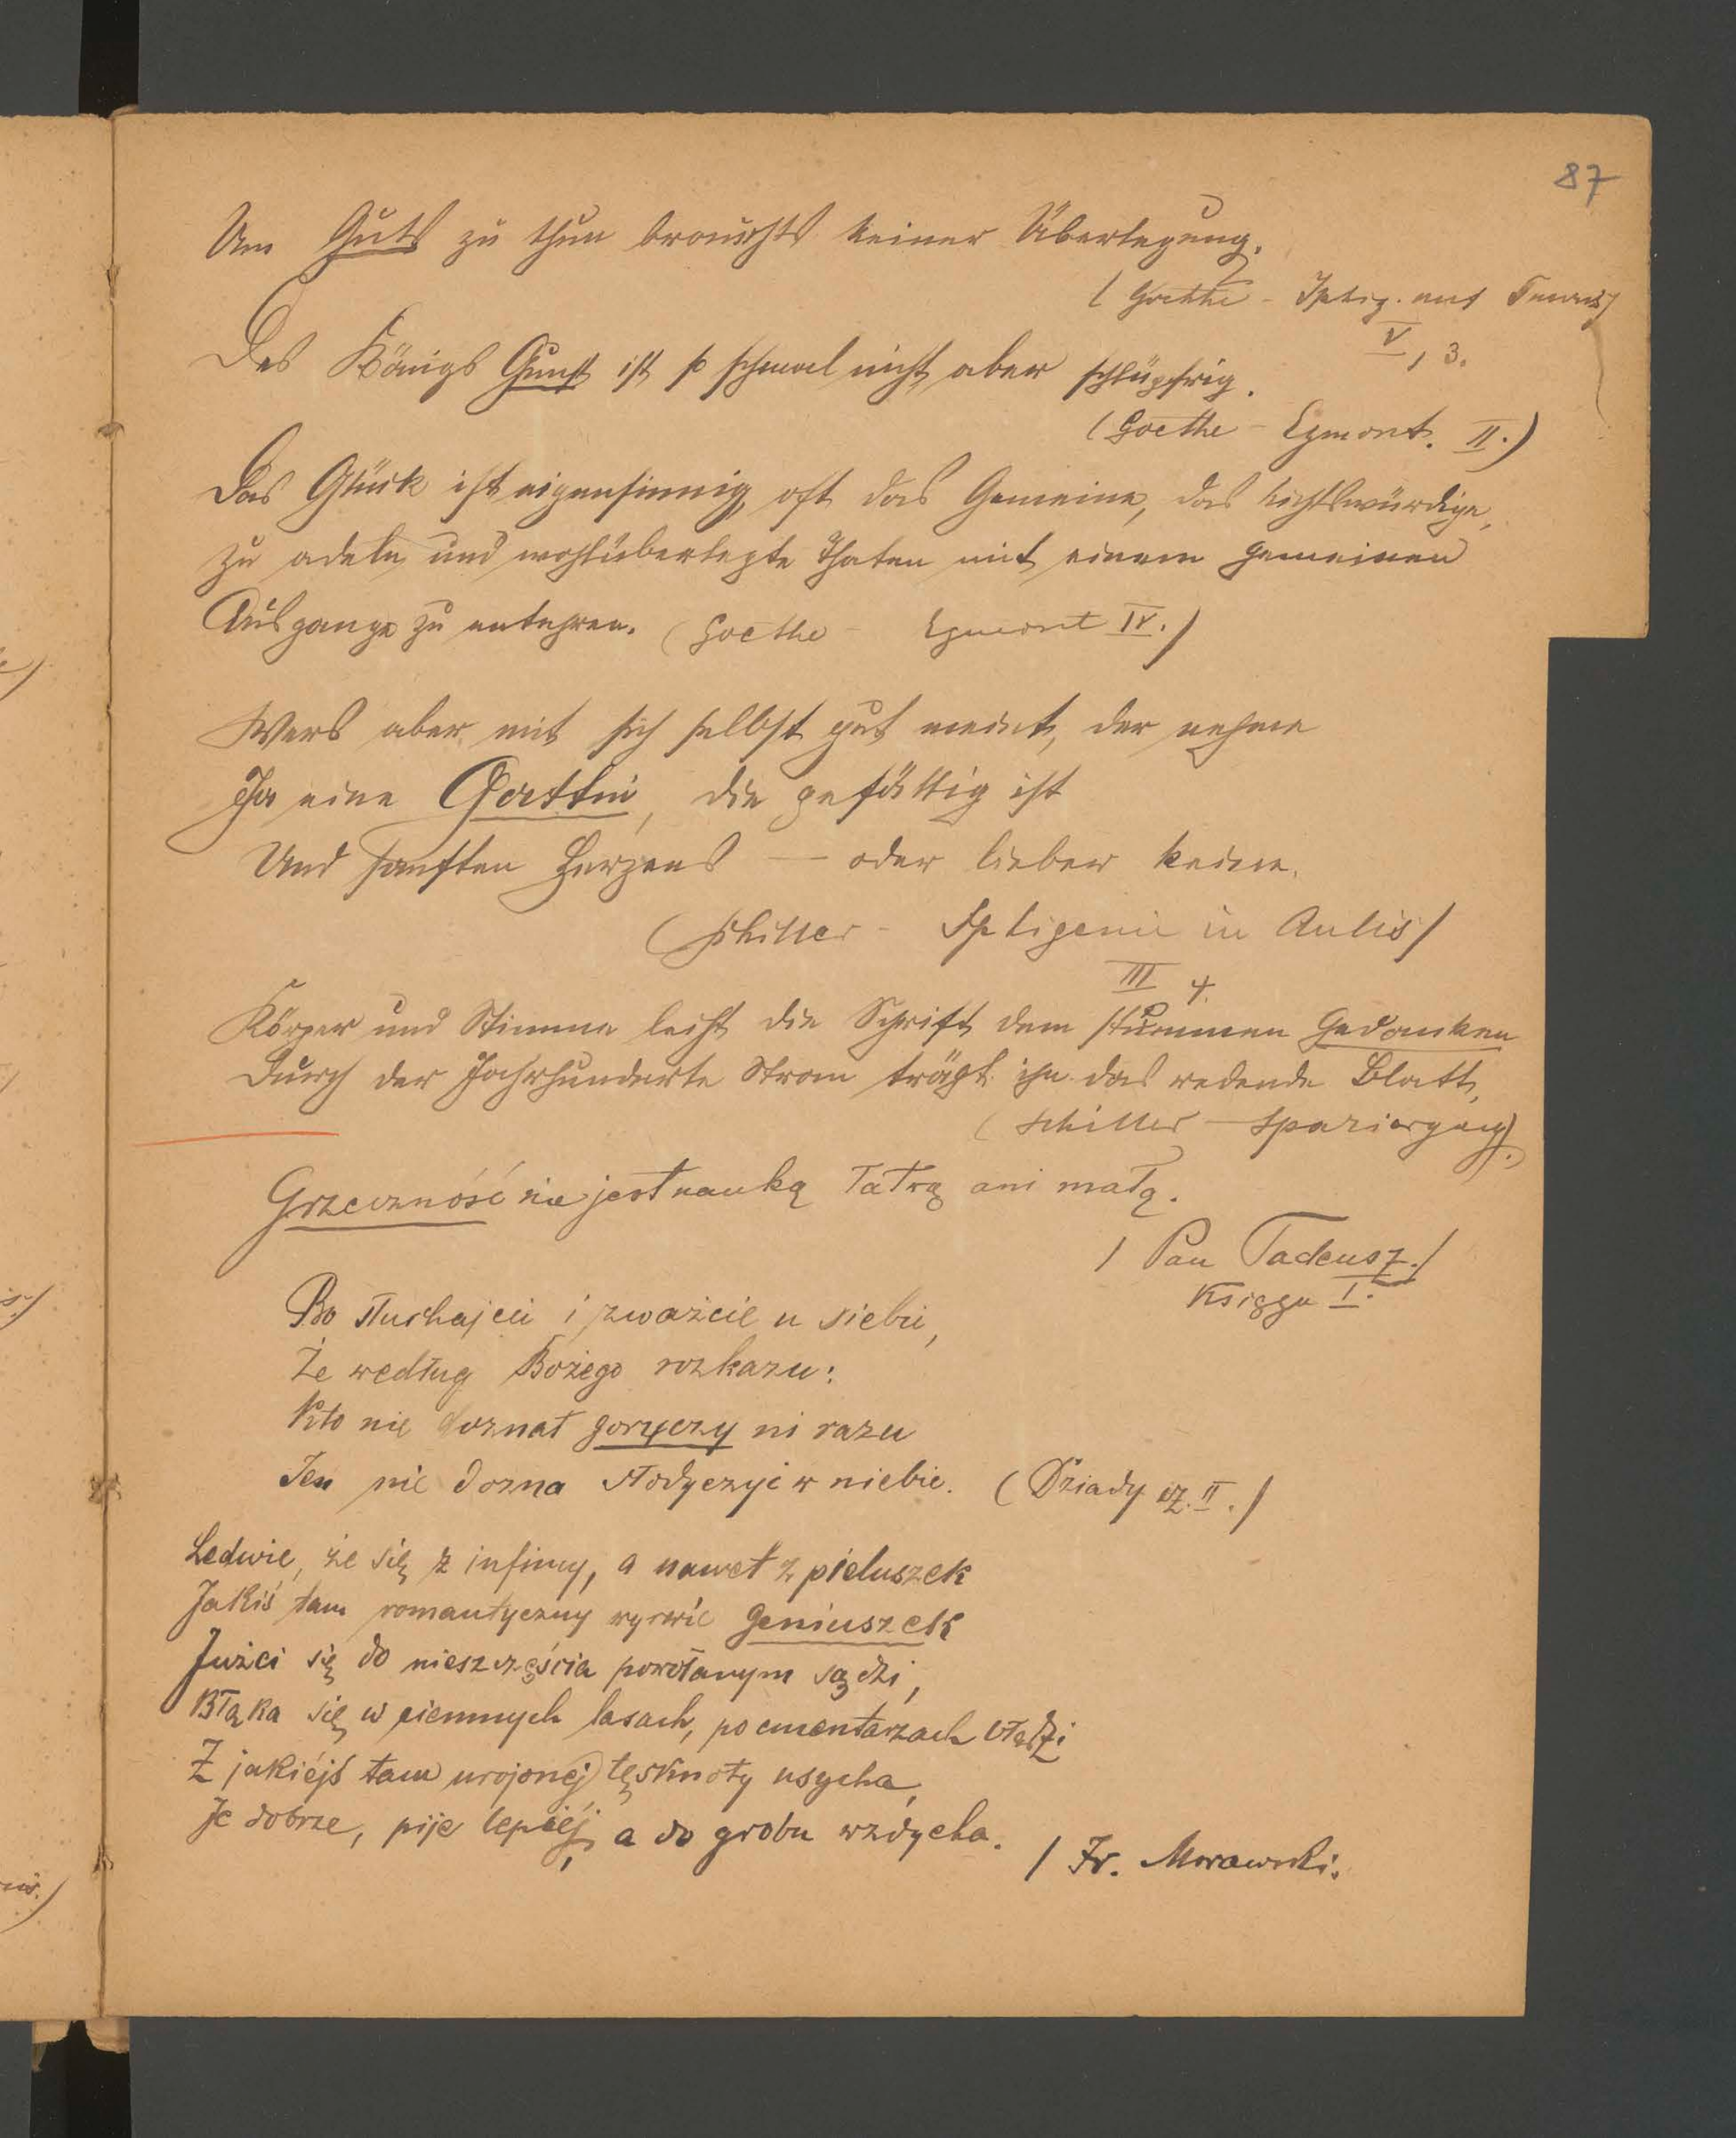 87
Um Guts zu thun brauchts keiner Überlegung.
(Goethe - Iphig. auf Tauris)
V, 3.
Des Königs Gunst ist so schmal nicht aber schlüpfrig.
(Goethe - Egmont. II.)
Das Glück ist eigensinnig, oft das Gemeine, das nichtswürdige,
zu adeln und wohlüberlegte Thaten mit einem gemeinen
Ausgange zu entehren. (Goethe - Egmont IV.)
Wers aber mit sich selbst gut meint, der nehme
Ja eine Gattin, die gefällig ist
Und sanften Herzens — oder lieber keine.
(Schiller - Iphigenie in Aulis)
III 4.
Körper und Stimme leiht die Schrift dem stummen Gedanken
Durch der Jahrhunderte Strom trägt ihn das redende Blatt,
(Schiller - Spaziergang).
Grzeczność nie jest nauką łatwą ani małą.
/ Pan Tadeusz./
Księga I.
Bo słuchajcie i zważcie u siebie,
Że według Bożego rozkazu:
Kto nie doznał goryczy ni razu
Ten nie dozna słodyczy w niebie. (Dziady cz. II./
Ledwie, że się z infimy, a nawet z pieluszek
Jakiś tam romantyczny wyrwie geniuszek
Jużci się do nieszczęścia powołanym sądzi,
Błąka się w ciemnych lasach, po cmentarzach błądzi
Z jakiéjś tam urojonéj tęsknoty usycha,
Je dobrze, pije lepiéj, a do grobu wzdycha.
/ Fr. Morawski.